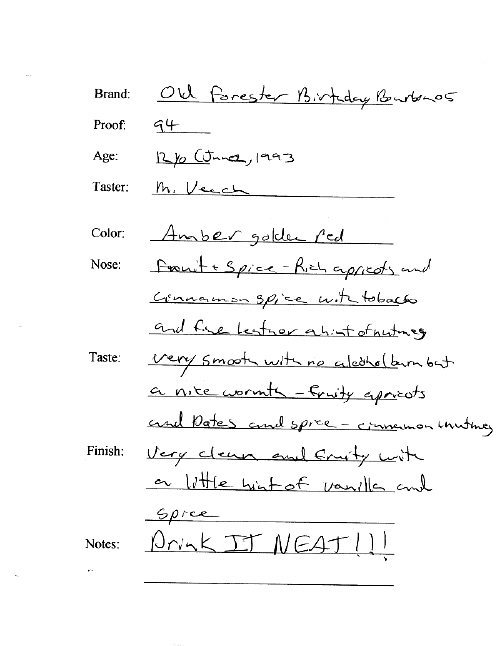 Brand: Old Forester Birthday Bourbon 05
Proof: 94
Age: 12 y/o (June 2, 1993
Taster: M. Veach
Color: Amber golden red
Nose: Fruit + Spice - Rich apricots and
cinnamon spice with tobacco
and fine leather a hint of nutmeg
Taste: Very smooth with no alcohol burn but
a nice warmth - fruity apricots
and Dates and spice - cinnamon + nutmeg
Finish: Very clean and fruity with
a little hint of vanilla and
spice
Notes: Drink IT NEAT!!!